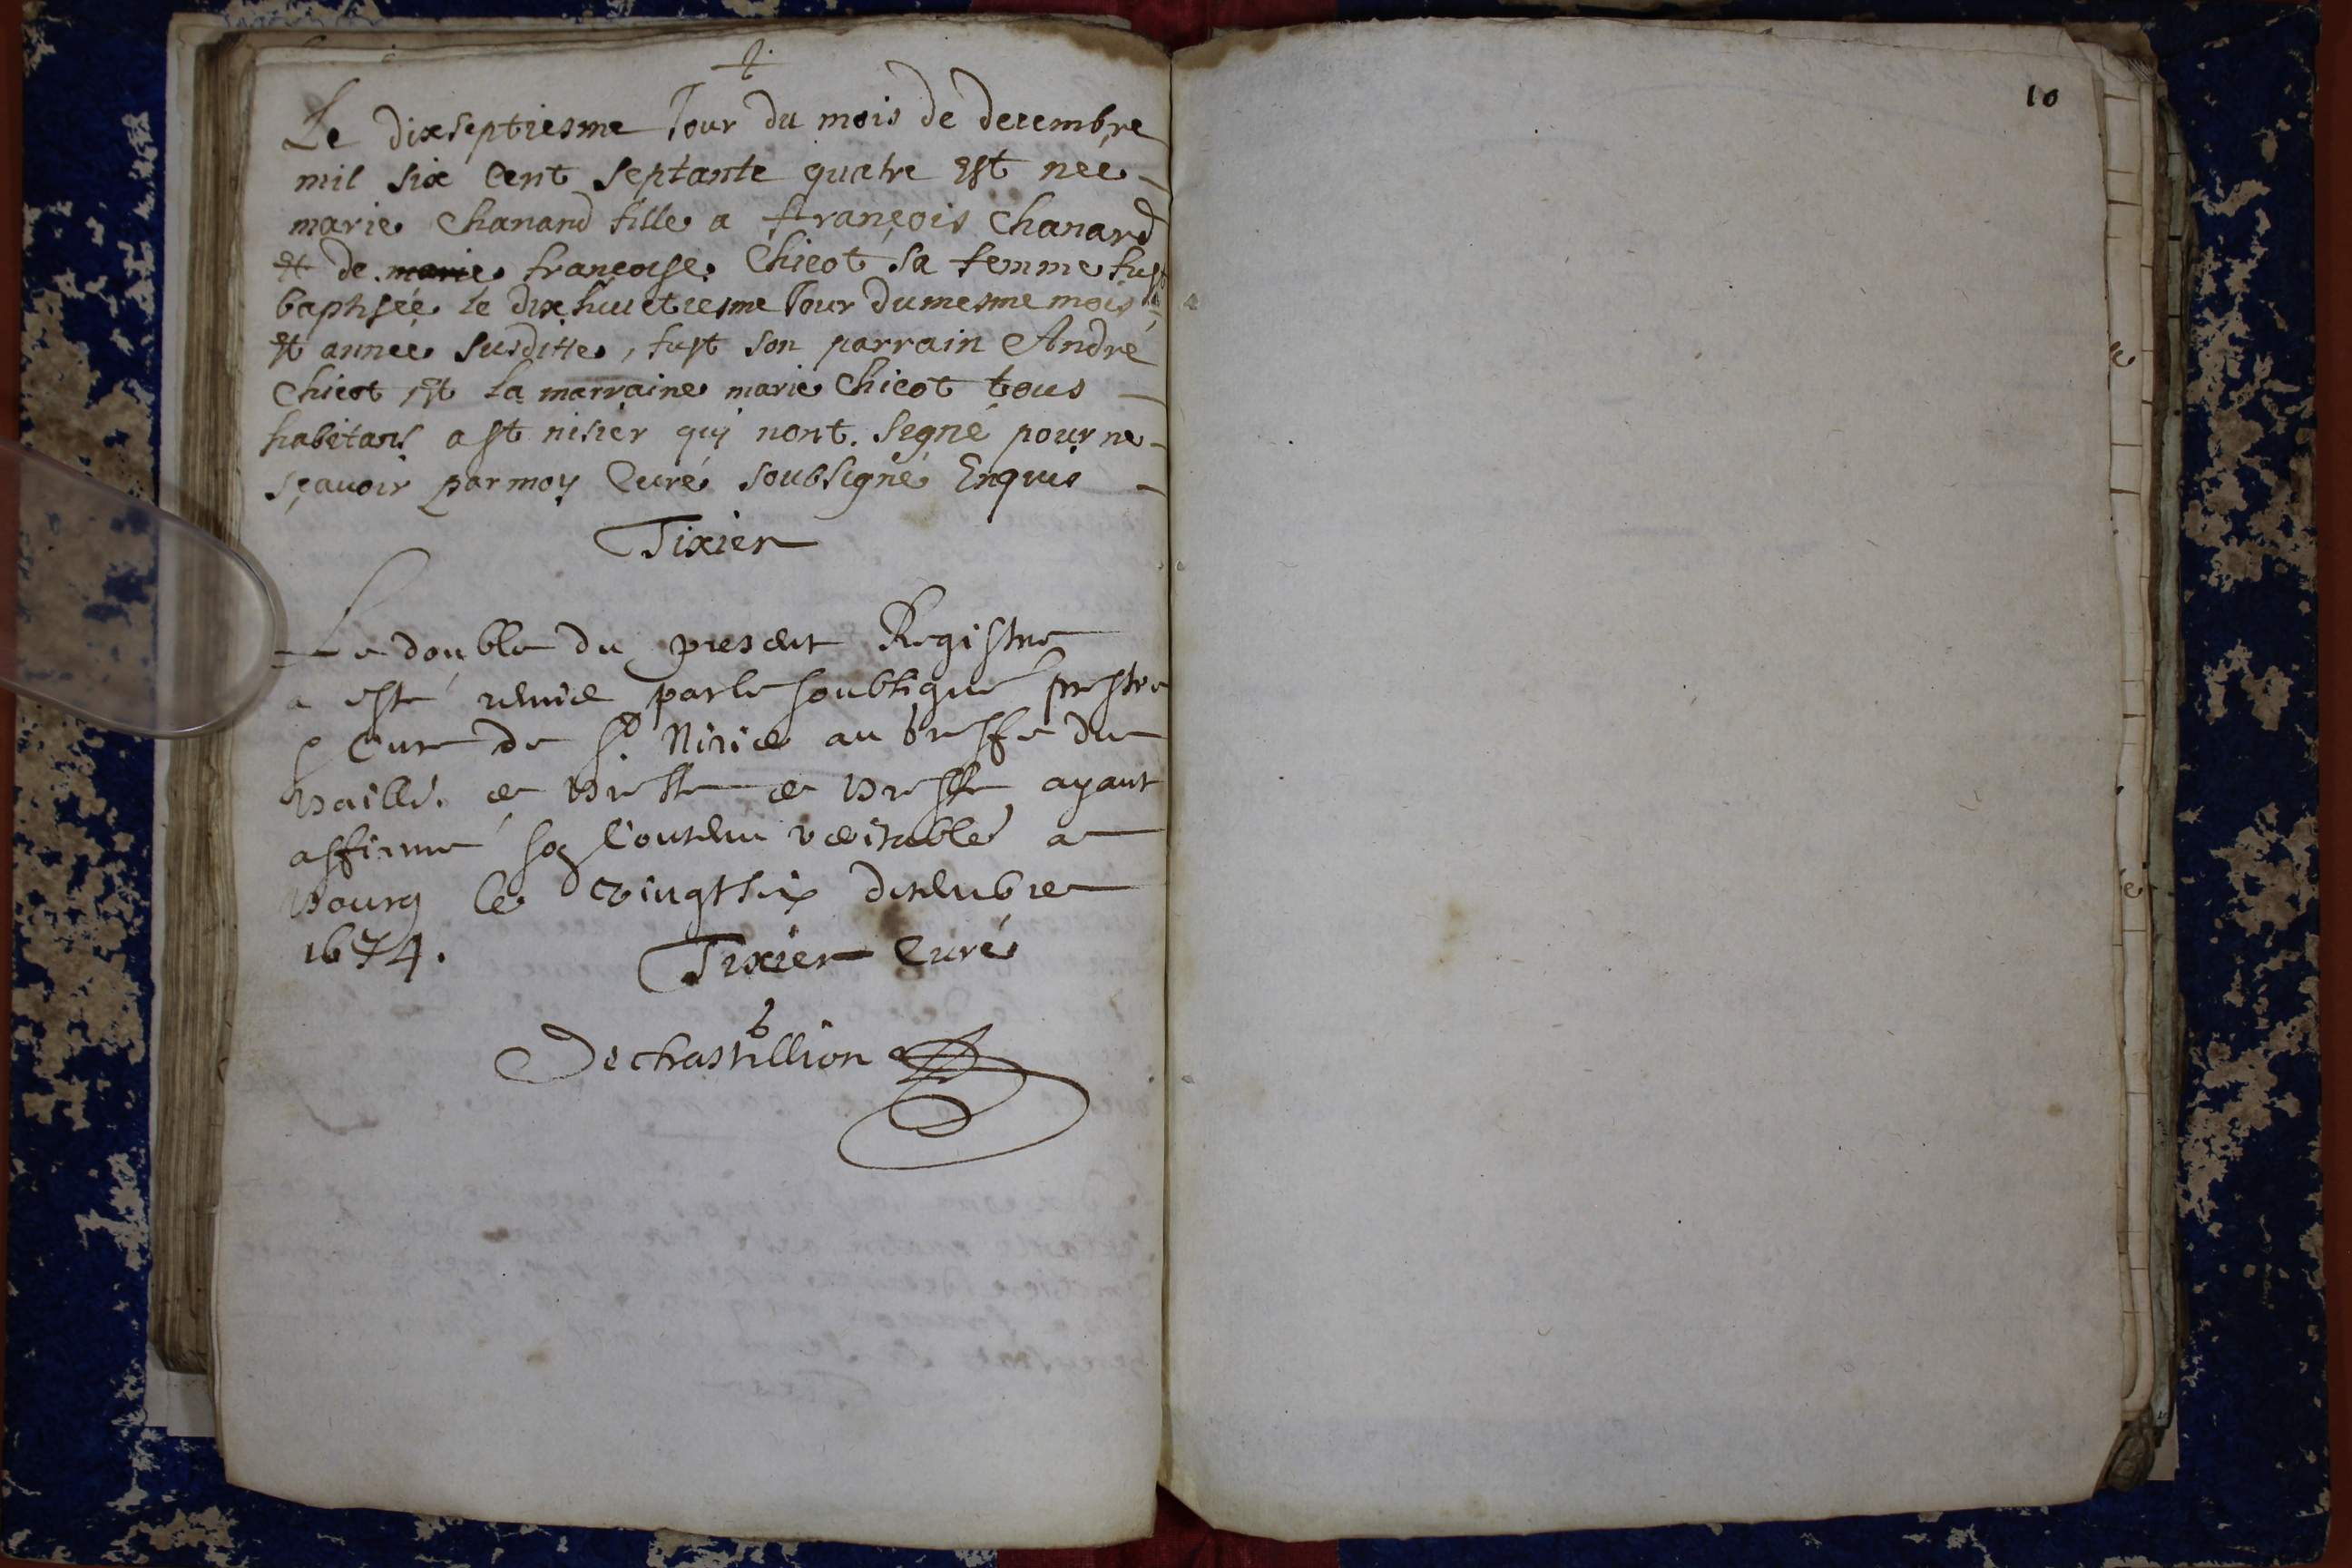 Le dixseptiesme Jour du mois de decembre
mil six cent septante quatre est neé
marie Chanard fille a françois Chanard
et de marie françoise Chicot sa femme fust
baptisée le dixhuictiesme Jour du mesme mois
et année susditte, fust son parrain André
Chicot et la marraine marie Chicot tous
habitans a st nisier qui nont signé pour ne
sçavoir par moy Curé soubsigné Enquis
Tixier
Le double du present Registre
a esté remis par le soubsigné prestre
Curé de St Nisier au greffe du
Bailli. de Bresse ayant
affirmé son Contenu veritable a
Bourg le vingtsix decembre
1674.
Tixier Curé
Dechastillion
10